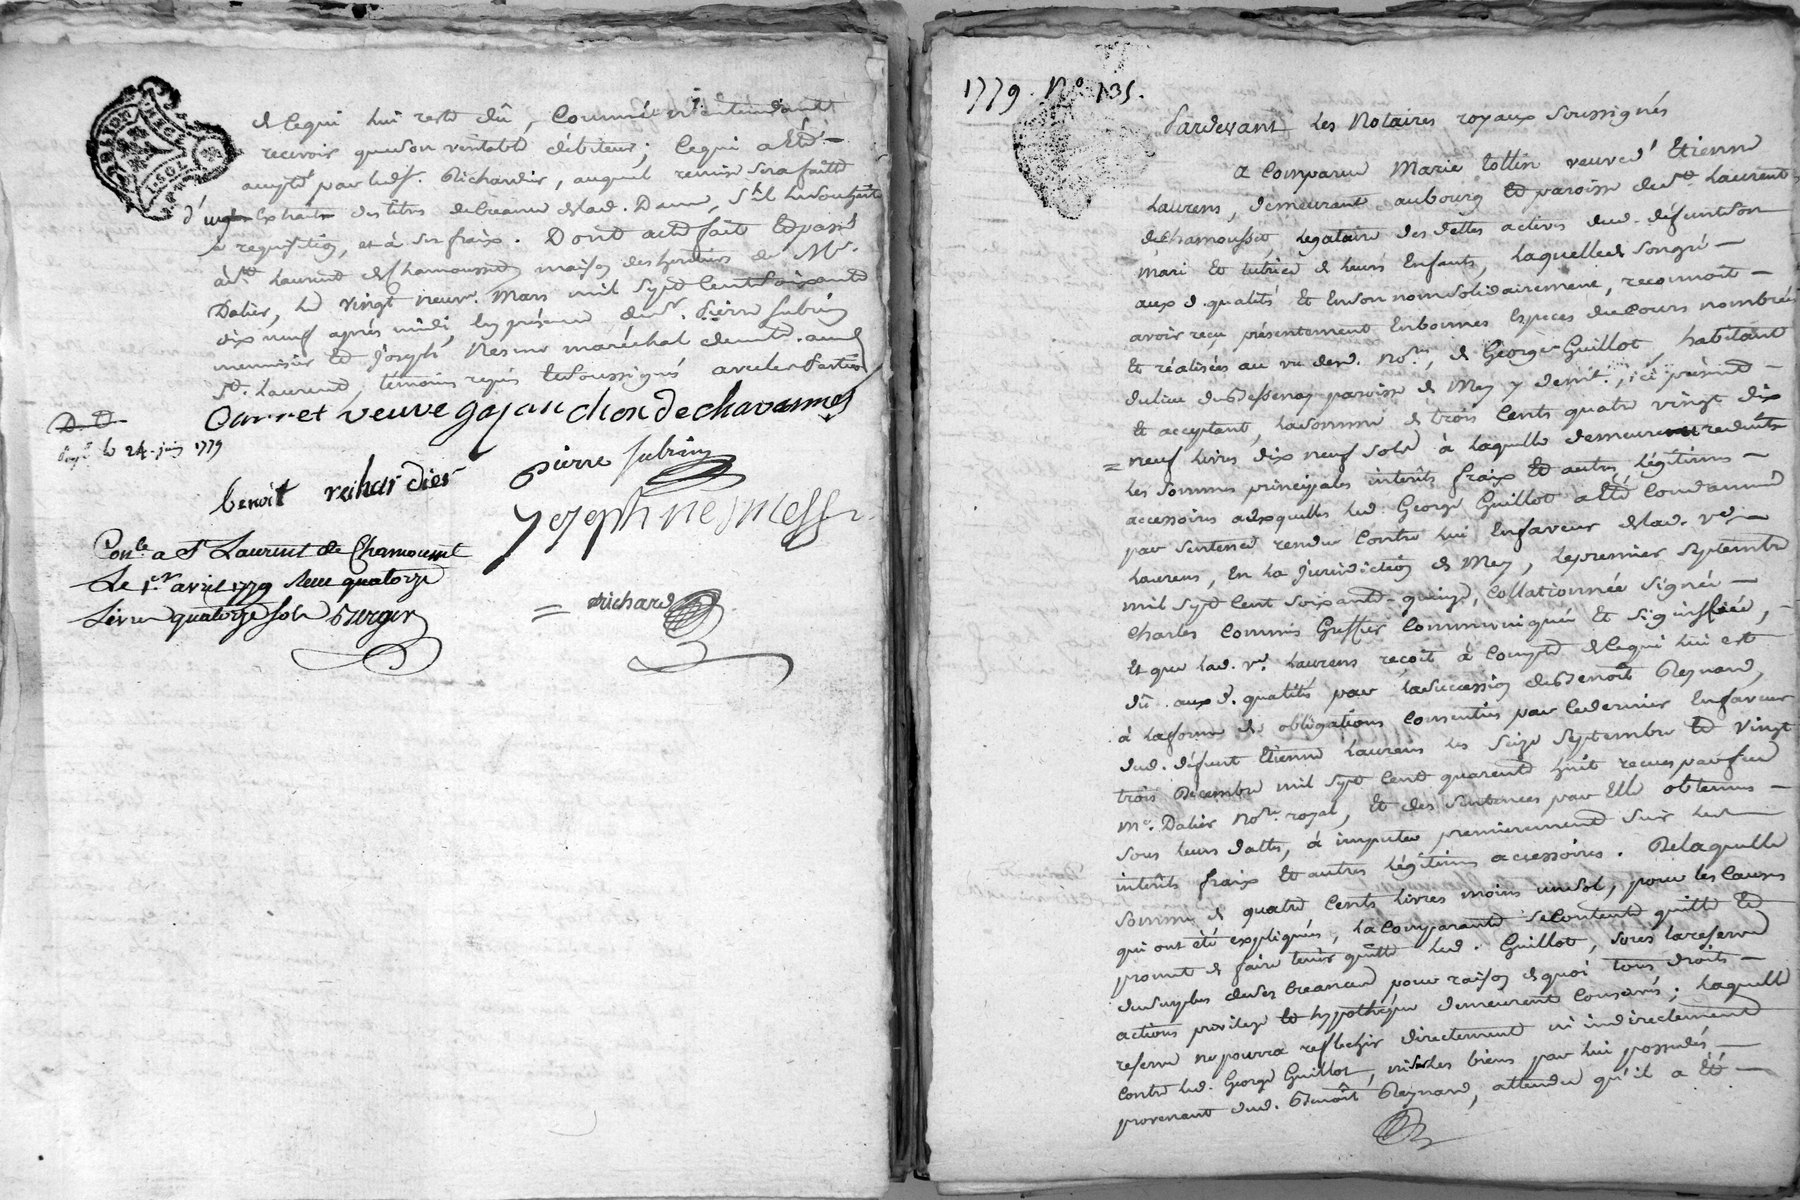 de cequi lui reste dû, comme n'entendant
recevoir que son veritable débiteur; cequi a été
accepté par led. sr. Richardier, auquel remise sera faitte
d'un Extrait des titres de creance de lad. Dame, s'il le souhaite
a requisition, et à ses fraix. Dont acte fait et passé
à St. Laurent de Chamousset maison des heritiers de Me.
Dalier, le vingt neuf mars mil sept cent soixante
dix neuf après midi, en présence de sr. Pierre Subrin
menuisier et Joseph Nesme maréchal demt. aud.
St. Laurent, témoins requis et soussignés avec les parties
Carret veuve gojon chon de chavannes
payé le 24. juin 1779
benoit richardier
pierre subrin
joseph nesme
Conlé. a St Laurent de Chamousset
Le 1er. avril 1779 Reçu quatorze
Livres quatorze sols Berger
= Richard
1779. No. 135.
Pardevant les Notaires royaux soussignés
a comparu Marie tollin veuve d'Etienne
Laurens, demeurant au bourg et paroisse de St. Laurent
de Chamousset, legataire des dettes actives dud. défunt son
mari et tutrice de leurs Enfants, laquelle de son gré
aux d. qualités et en son nom solidairement, reconnoit
avoir reçu présentement en bonnes Especes du cours nombrées
et réalisées au vu desd. nores, de George Guillot habitant
du lieu de paroisse de Mey y demt., ici présent
et acceptant, la somme de trois cents quatre vingt dix
= neuf livres dix neuf sols à laquelle demeurent reduits
les sommes principales intérêts fraix et autres légitimes
accessoires auxquelles led. George Guillot a été condamné
par sentence rendue contre lui en faveur de lad. ve.
Laurens, en la Jurisdiction de Mey, le premier septembre
mil sept cent soixante-quinze, collationnée signée
Charles commis Greffier communiquée et signiffiée,
et que lad. ve. Laurens reçoit à compte de cequi lui est
dû aux d. qualités par la succession de Benoît Reynard,
à la forme des obligations consenties par ce dernier en faveur
dud. défunt Etienne Laurens les seize septembre et vingt
trois décembre mil sept cent quarente huit recues par feu
Me. Dalier nore. royal, et des sentences par elle obtenues
sous leurs dattes, à imputer premierement sur les
intérêts fraix et autres légitimes accessoires. De laquelle
somme de quatre cents livres moins un sol, pour les causes
qui ont été expliquées, la comparante se contente quitte et
promet de faire tenir quitte led. Guillot, sous la reserve
du surplus de ses creances pour raison de quoi tous droits
actions privilege et hypotheque demeurent conservés; laquelle
reserve ne pourra reflechir directement ni indirectement
contre led. George Guillot, ni sur les biens par lui possedés
provenant dud. Benoît Reynard, attendu qu'il a été